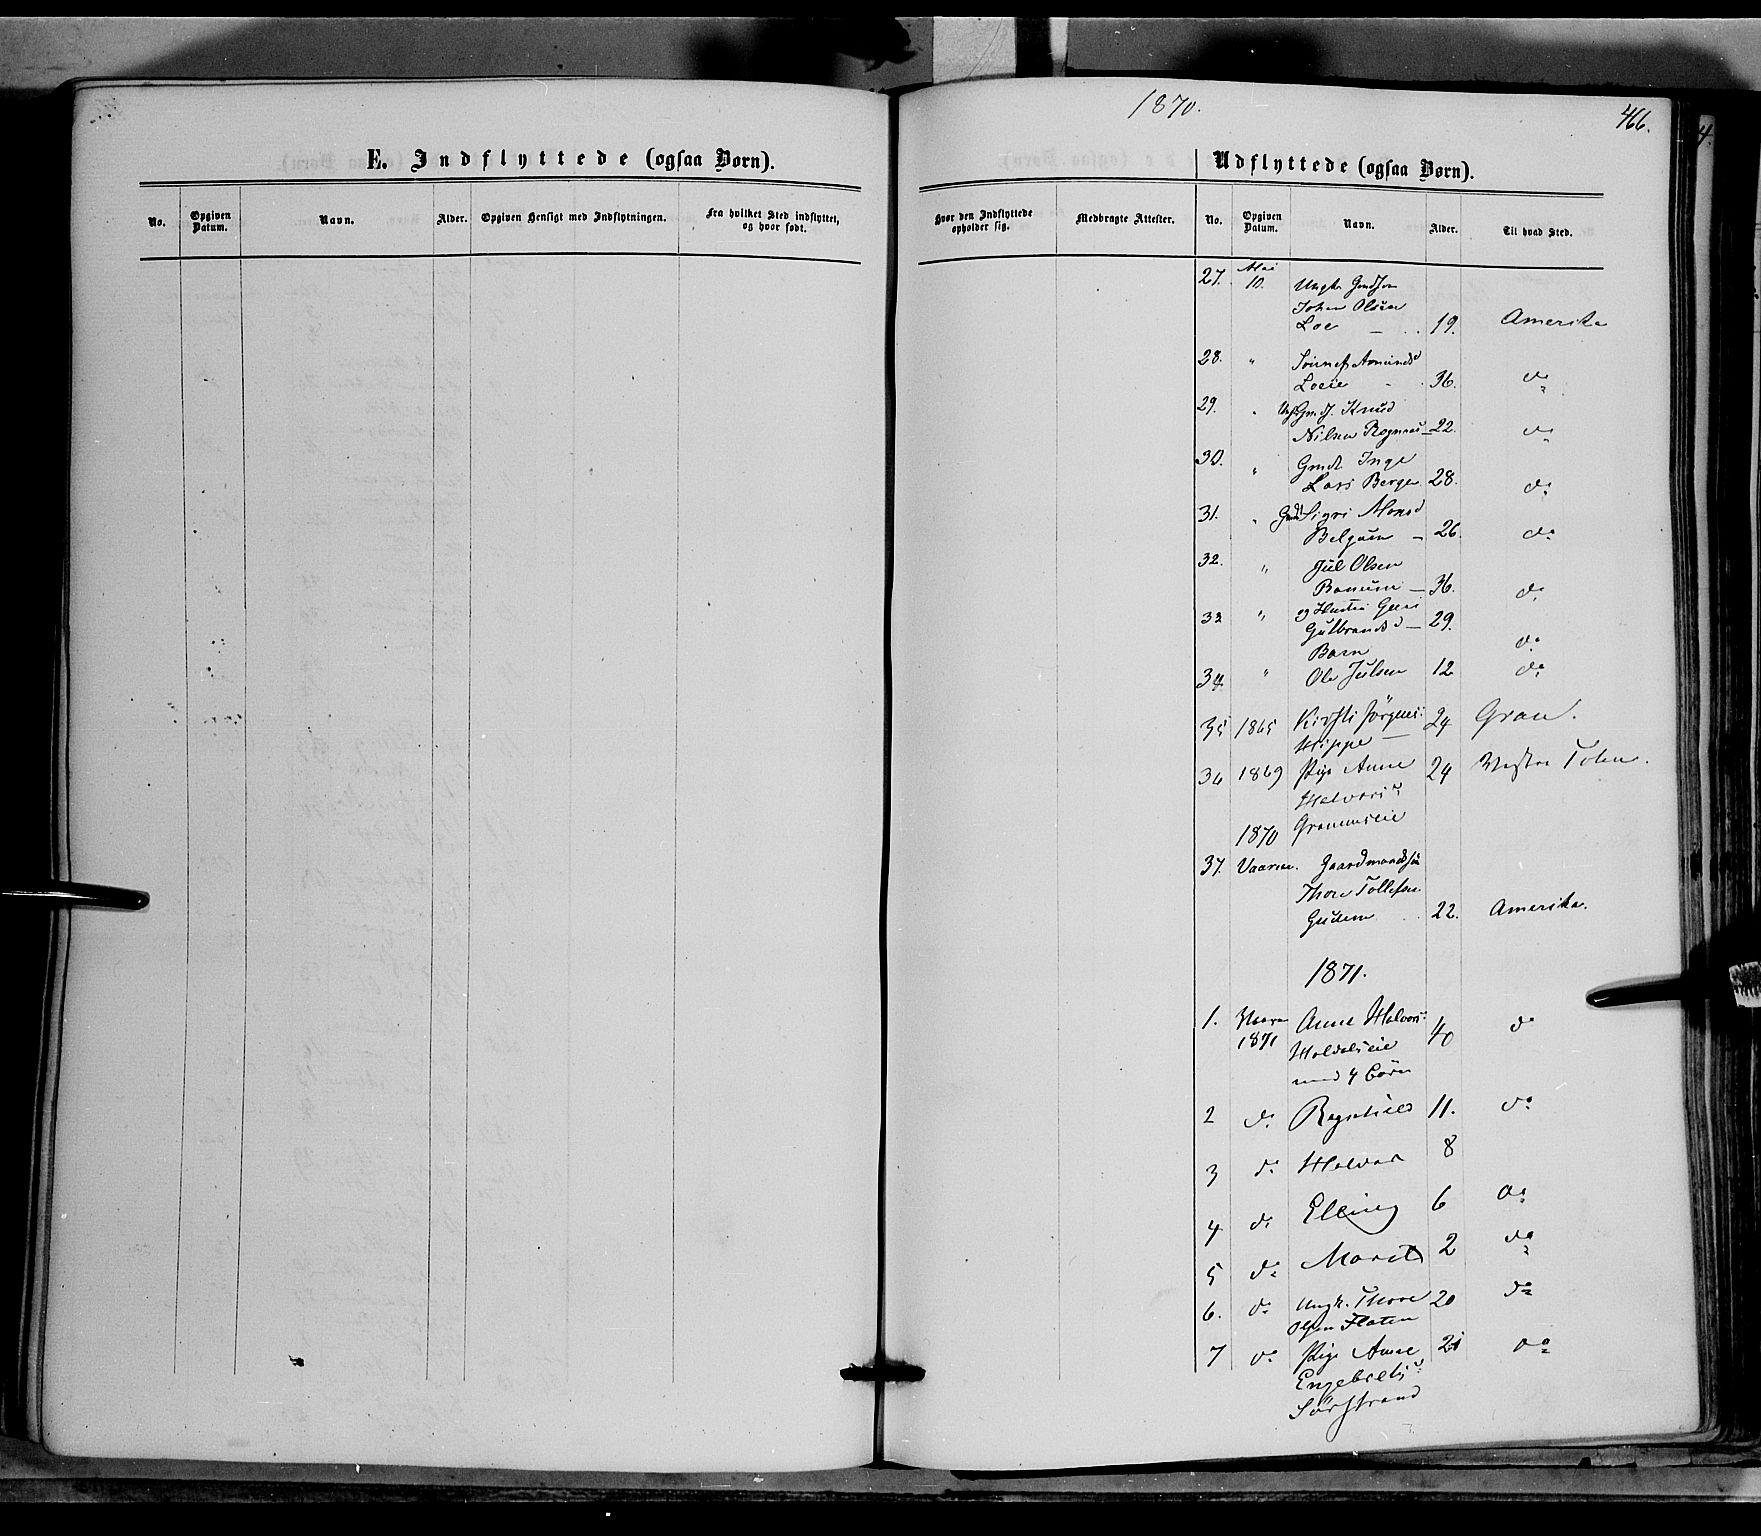 1870.
466.
E. Indflyttede (ogsaa Børn).
Udflyttede (ogsaa Børn).
No. Opgiven Datum. Navn. Alder. Opgiven Hensigt med Indflytningen. Fra hvilket Sted indflyttet, og hvor født.
Hvor den Indflyttede opholder sig. Medbragte Attester. No. Opgiven Datum. Navn. Alder. Til hvad Sted.
27. Mai 10. Ungk.
Johan Olsen
Loe 19. Amerika
28. " Amunds d
Loeie 36. do
29. " Knud
Nilsen Rognaas 22. do
30. " Inge
Lars Berge 28. do
31. " Sigri Mons d
Belgum 26. do
32. " Jul Olsen
Bonum 36. do
33 " og Hustru Guri
Gulbrands d 29. do
Barn
34. " Ole Julsen 12 do
35 1865 Kirsti Jörgens 24 Gran.
Hippe
36 1869 Pige Anne 24 Vestre Toten.
Halvors d
1870
37. Vaaren. Gaardmandssön
Thore Tollefsen
Gudem 22. Amerika.
1871.
1. Vaaren 1871 Anne Halvors 40 do
med 4 Börn
2 do Ragnhild 11. do
3 do Halvor 8
4 do Elling 6 do
5 do Marit 2 do
6. do Ungk. Thore 20 do
Olsen Flaten
7 do Pige Anne 21 do
Engebrets d
Sörstrand